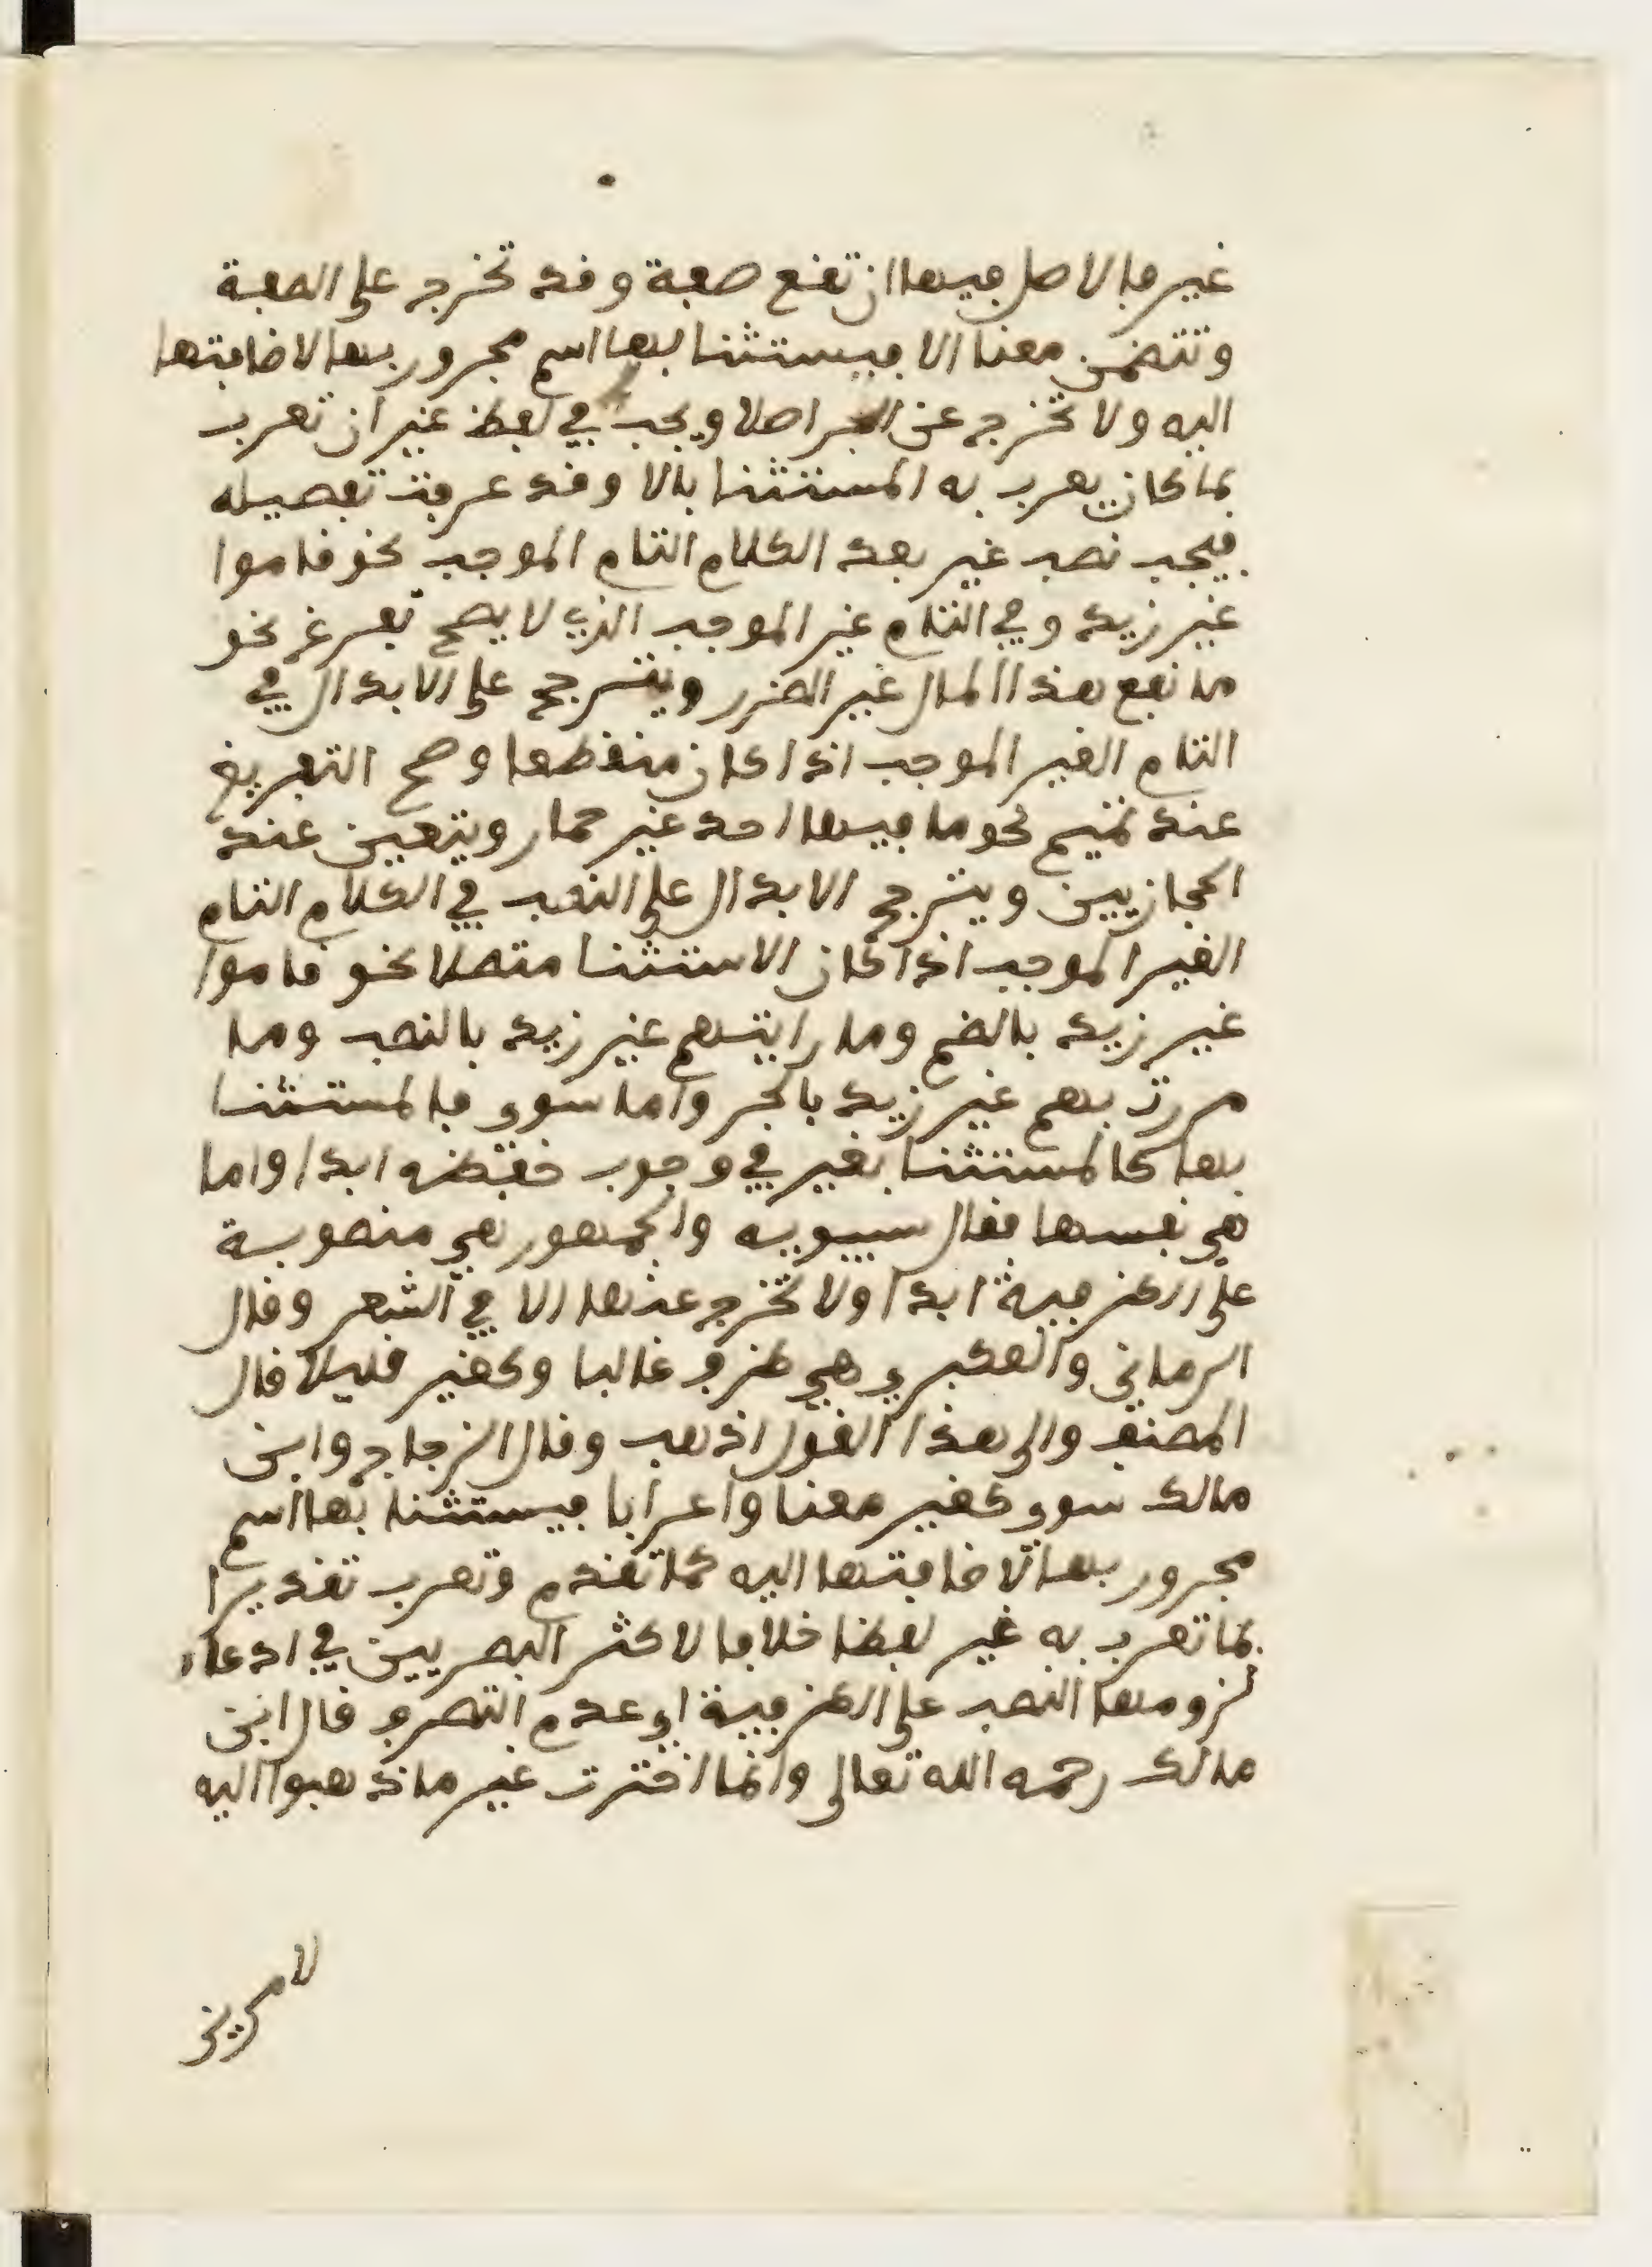 غير فالاصل فيها ان تقع صفة وقد تخرج على الصفة
وتتضمن معنا الا فيستثنا بها اسم مجرور بها لاضافتها
اليه ولا تخرج عن الجر اصلا ويجب في لفظ غير ان تعرب
بما كان يعرب به المستثنا بالا وقد عرفت تفصيله
فيجب نصب غير بعد الكلام التام الموجب نحو قاموا
غير زيد وفي التام غير الموجب الذي لا يصح تفرغه نحو
ما نفع هذا المال غير الضرر ويترجح على الابدال في
التام الغير الموجب اذا كان منقطعا وصح التفريغ
عند تميم نحو ما فيها احد غير حمار ويتعين عند
الحجازيين ويترجح الابدال على النصب في الكلام التام
الغير الموجب اذا كان الاستثنا متصلا نحو قاموا
غير زيد بالضم وما رايتهم غير زيد بالنصب وما
مررت بهم غير زيد بالجر واما سوى فالمستثنا
بها كالمستثنا بغير في وجوب خفضه ابدا واما
هي نفسها فقال سيبويه والجمهور هي منصوبة
على الظرفية ابدا ولا تخرج عنها الا في الشعر وقال
الرماني والعكبري هي ظرف غالبا وكغير قليلا قال
المصنف والى هذا القول اذهب وقال الزجاج وابن
مالك سوى كغير معنا واعرابا فيستثنا بها اسم
مجرور بها لاضافتها اليه كما تقدم وتعرب تقديرا
بما تعرب به غير لفظا خلافا لاكثر البصريين في ادعاء
لزومها النصب على الظرفية اي عدم التصرف قال ابن
مالك رحمه الله تعالى وانما اخترت غير ما ذهبوا اليه
لامرين